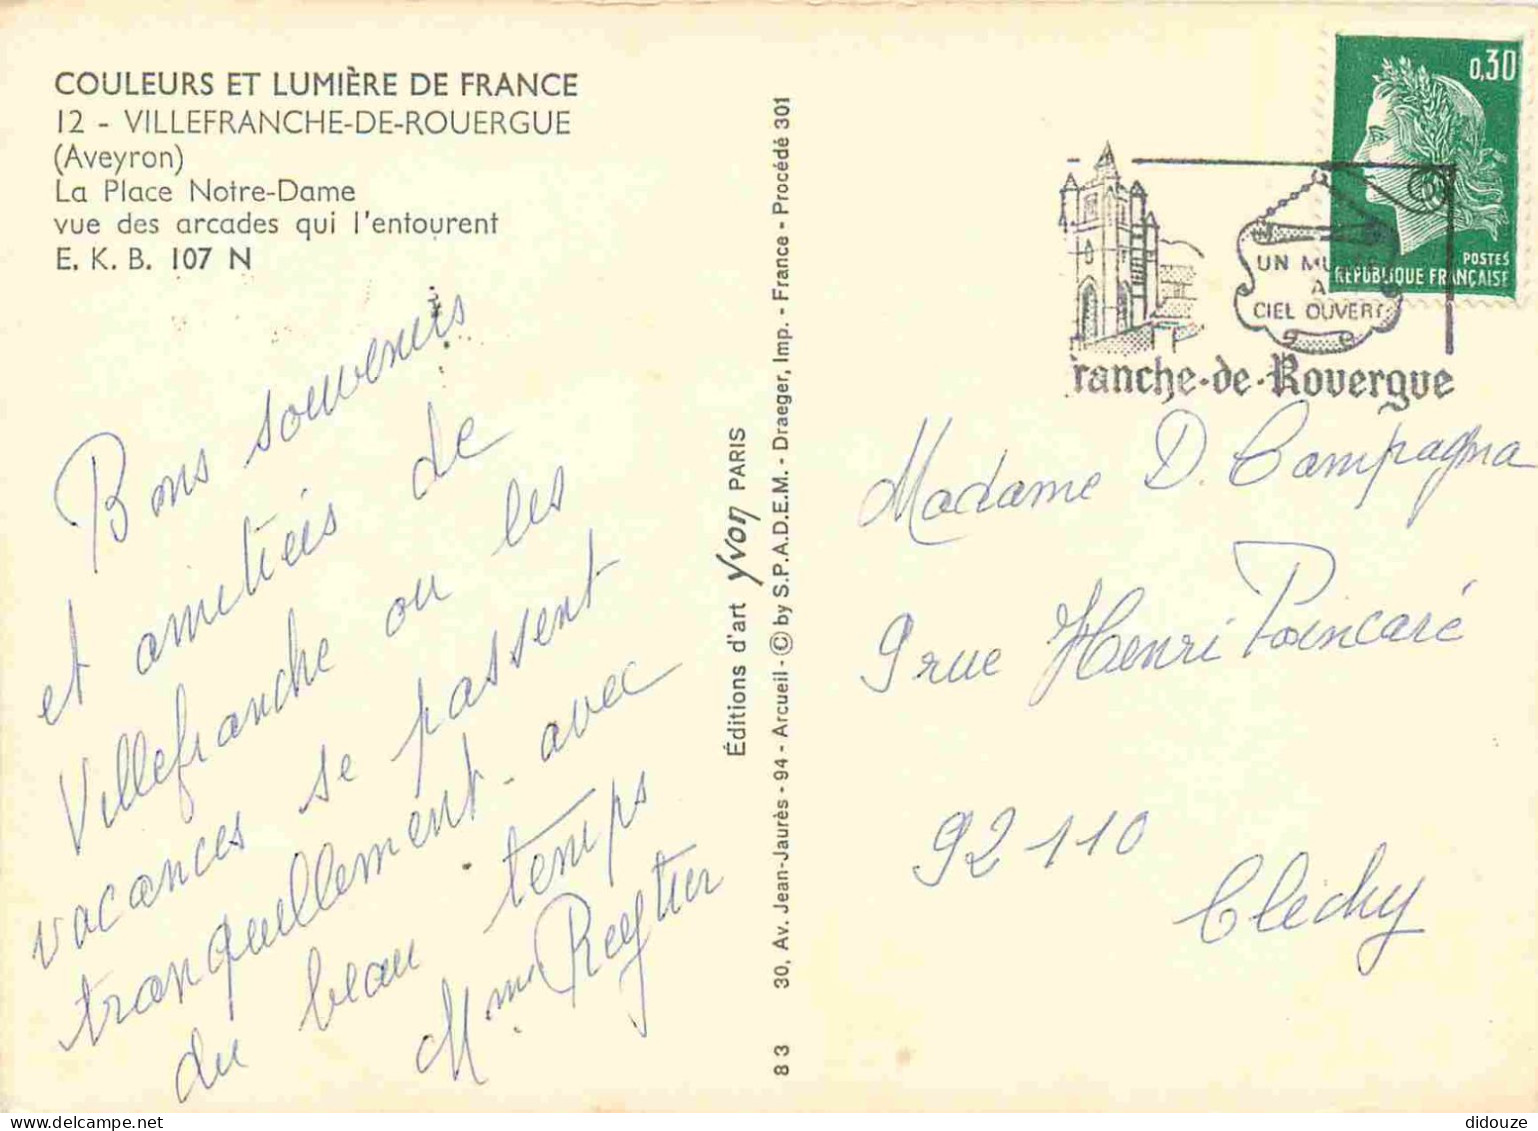 COULEURS ET LUMIÈRE DE FRANCE
12 - VILLEFRANCHE-DE-ROUERGUE
(Aveyron)
La Place Notre-Dame
vue des arcades qui l'entourent
E. K. B. 107 N
Bons souvenirs
et amitiés de
Villefranche ou les
vacances se passent
tranquillement - avec
du beau temps
Mme
Éditions d'art yvon PARIS
83 30, Av. Jean-Jaurès - 94 - Arcueil - © by S.P.A.D.E.M. - Draeger, Imp. - France - Procédé 301
0,30
POSTES
RÉPUBLIQUE FRANÇAISE
UN MUSÉE
A
CIEL OUVERT
franche-de-Rouergue
Madame D. Campagna
9 rue Henri Poincaré
92110
Clichy
didouze